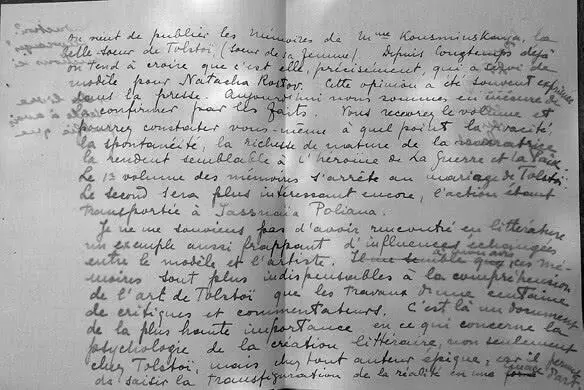 On vient de publier les Mémoires de Mme Kousminskaya, la
belle-soeur de Tolstoï (soeur de sa femme). Depuis longtemps déjà
on tend à croire que c'est elle, précisément, qui a servi de
modèle pour Natacha Rostov. Cette opinion a été souvent exprimée
dans la presse. Aujourd'hui nous sommes en mesure de
confirmer par les faits. Vous recevrez le volume et
pourrez constater vous-même à quel point la vivacité,
la spontanéité, la richesse de nature de la narratrice
la rendent semblable à l'héroïne de La Guerre et la Paix.
Le 1er volume des mémoires s'arrête au mariage de Tolstoï.
Le second sera plus intéressant encore, l'action étant
transportée à Iassnaïa Poliana.
Je ne me souviens pas d'avoir rencontré en littérature
un exemple aussi frappant d'influences échangées
entre le modèle et l'artiste. Il me semble que ces mé-
moires sont plus indispensables à la compréhension
de l'art de Tolstoï que les travaux d'une centaine
de critiques et commentateurs. C'est là un document
de la plus haute importance en ce qui concerne la
psychologie de la création littéraire, non seulement
chez Tolstoï, mais chez tout auteur épique, car il permet
de saisir la transfiguration de la réalité en une